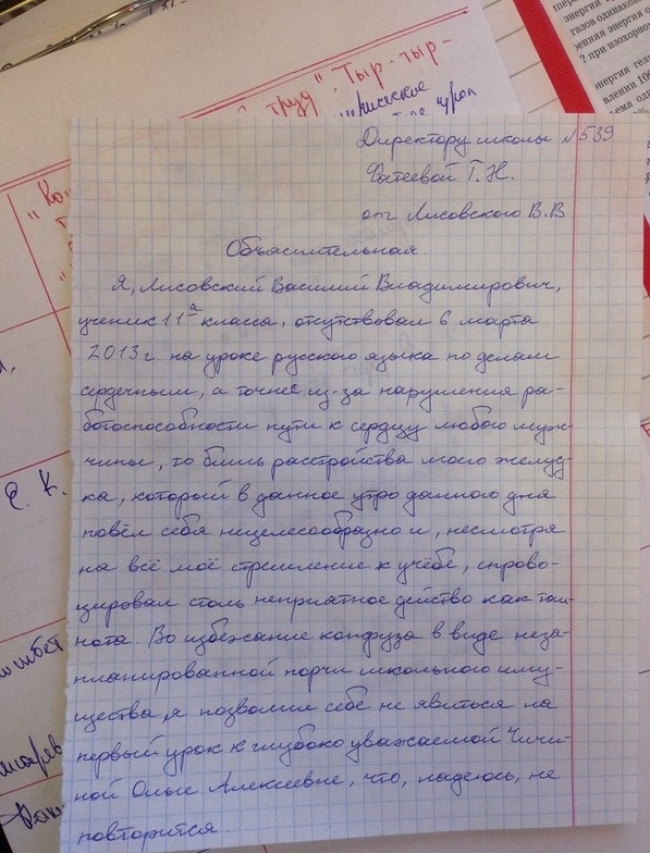 труд". Тыр-тыр-
Директору школы №539
Фатеевой Т.Н.
от Лисовского В.В
Объяснительная.
Я, Лисовский Василий Владимирович,
ученик 11а класса, отсутствовал 6 марта
2013г. на уроке русского языка по делам
сердечным, а точнее из-за нарушения ра-
ботоспособности пути к сердцу любого муж-
чины, то бишь расстройства моего желуд-
ка, который в данное утро данного дня
повёл себя нецелесообразно и, несмотря
на всё моё стремление к учёбе, спрово-
цировал столь неприятное действо как тош-
нота. Во избежание конфуза в виде неза-
планированной порчи школьного иму-
щества, я позволил себе не явиться на
первый урок к глубоко уважаемой Чичи-
ной Ольге Алексеевне, что, надеюсь, не
повторится.
Е. К.
энергии
газов одинаков
? при изохорно
энергия гел
влении 10